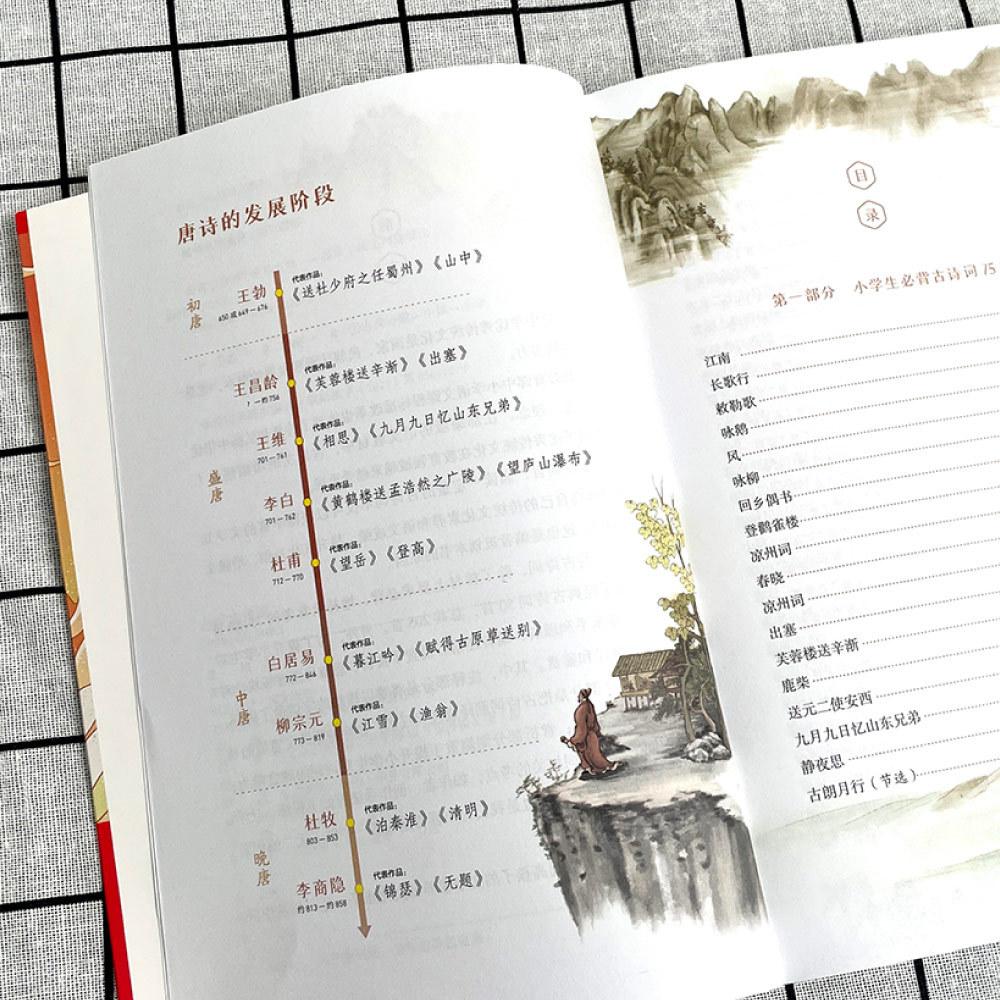 唐诗的发展阶段
初唐
王勃
650 或 649—676
代表作品：
《送杜少府之任蜀州》《山中》
盛唐
王昌龄
？—约756
代表作品：
《芙蓉楼送辛渐》《出塞》
王维
701—761
代表作品：
《相思》《九月九日忆山东兄弟》
李白
701—762
代表作品：
《黄鹤楼送孟浩然之广陵》《望庐山瀑布》
杜甫
712—770
代表作品：
《望岳》《登高》
中唐
白居易
772—846
代表作品：
《暮江吟》《赋得古原草送别》
柳宗元
773—819
代表作品：
《江雪》《渔翁》
晚唐
杜牧
803—853
代表作品：
《泊秦淮》《清明》
李商隐
约813—约858
代表作品：
《锦瑟》《无题》
目录
第一部分 小学生必背古诗词75
江南
长歌行
敕勒歌
咏鹅
风
咏柳
回乡偶书
登鹳雀楼
凉州词
春晓
凉州词
出塞
芙蓉楼送辛渐
鹿柴
送元二使安西
九月九日忆山东兄弟
静夜思
古朗月行（节选）